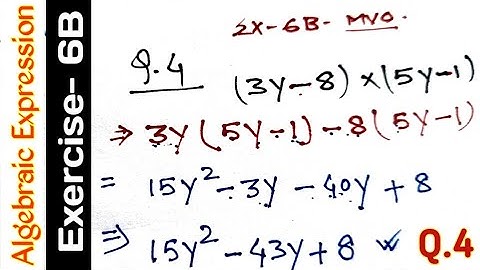 Algebraic Expression
Exercise- 6B
EX-6B- MVO.
Q.4 (3y-8)×(5y-1)
⇒ 3y(5y-1)-8(5y-1)
= 15y²-3y-40y+8
⇒ 15y²-43y+8
Q.4